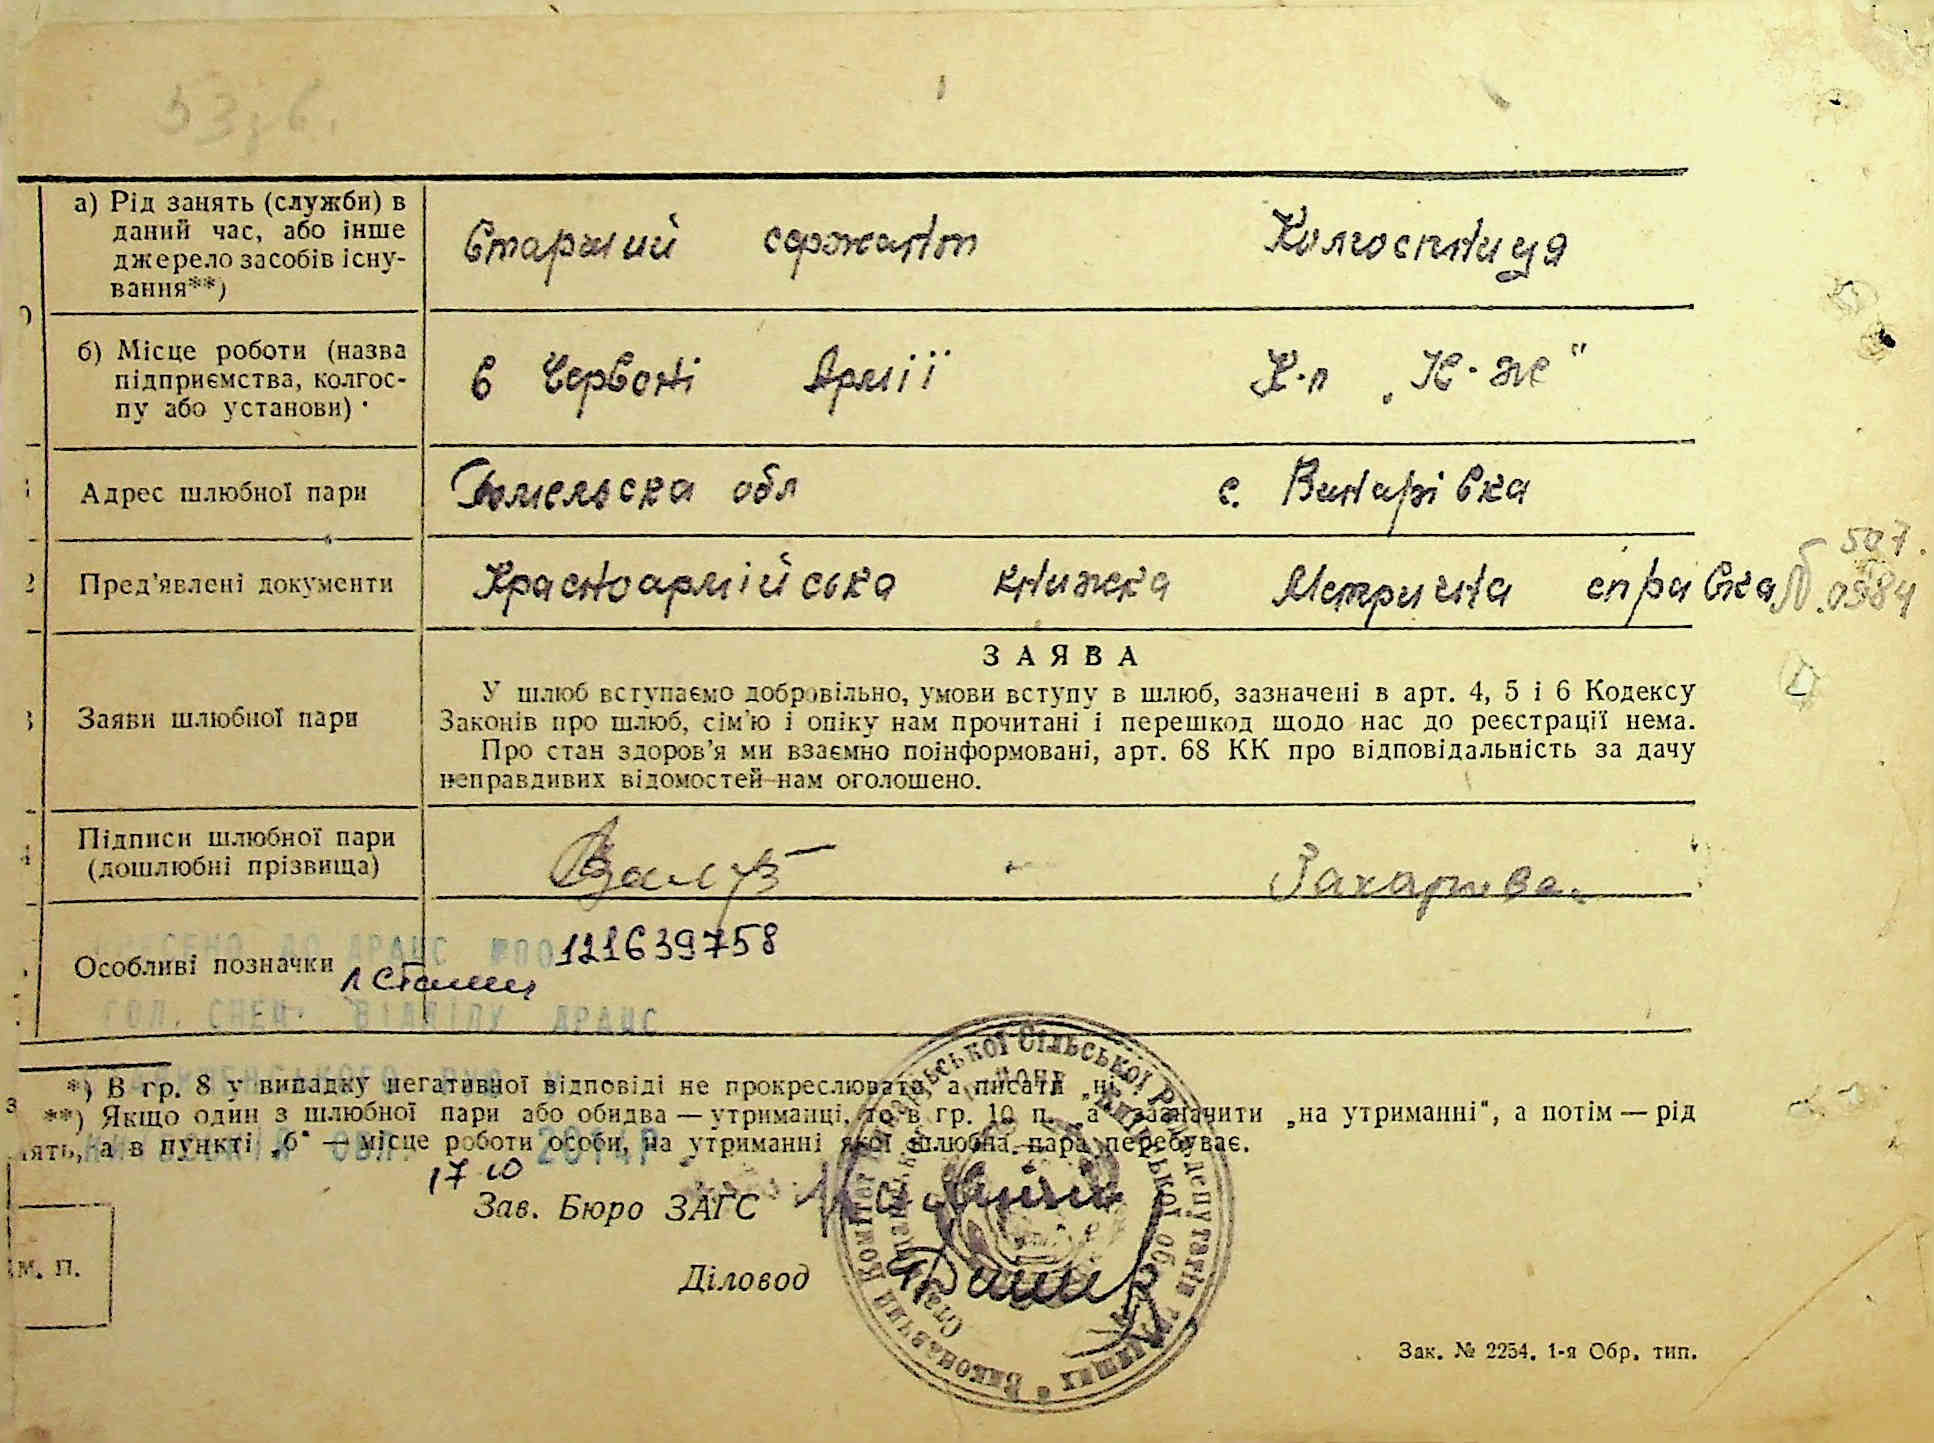 53,6.
а) Рід занять (служби) в
даний час, або інше
джерело засобів існу-
вання**)
Старший сержант Колгоспниця
б) Місце роботи (назва
підприємства, колгос-
пу або установи)
в Червоні Армії К-п „Н-Ж"
Адрес шлюбної пари
Гомельска обл с. Винарівка
Пред'явлені документи
Красноармійська книжка Метрична справка № 0584
507.
Заяви шлюбної пари
ЗАЯВА
У шлюб вступаємо добровільно, умови вступу в шлюб, зазначені в арт. 4, 5 і 6 Кодексу
Законів про шлюб, сім'ю і опіку нам прочитані і перешкод щодо нас до реєстрації нема.
Про стан здоров'я ми взаємно поінформовані, арт. 68 КК про відповідальність за дачу
неправдивих відомостей нам оголошено.
Підписи шлюбної пари
(дошлюбні прізвища)
Особливі позначки
ДО ДРАЦС 00121639758
ГОЛ. СПЕЦ. ВІДДІЛУ ДРАЦС
*) В гр. 8 у випадку негативної відповіді не прокреслювати, а писати „ні".
**) Якщо один з шлюбної пари або обидва — утриманці, то в гр. 10 п. „а" зазначити „на утриманні", а потім — рід
нять, а в пункті „б" — місце роботи особи, на утриманні якої шлюбна пара перебуває.
17 10 2014
Зав. Бюро ЗАГС
Діловод
м. п.
Виконавчий Комітет Сільської Ради депутатів трудящих
Київської обл.
Зак. № 2254. 1-я Обр. тип.